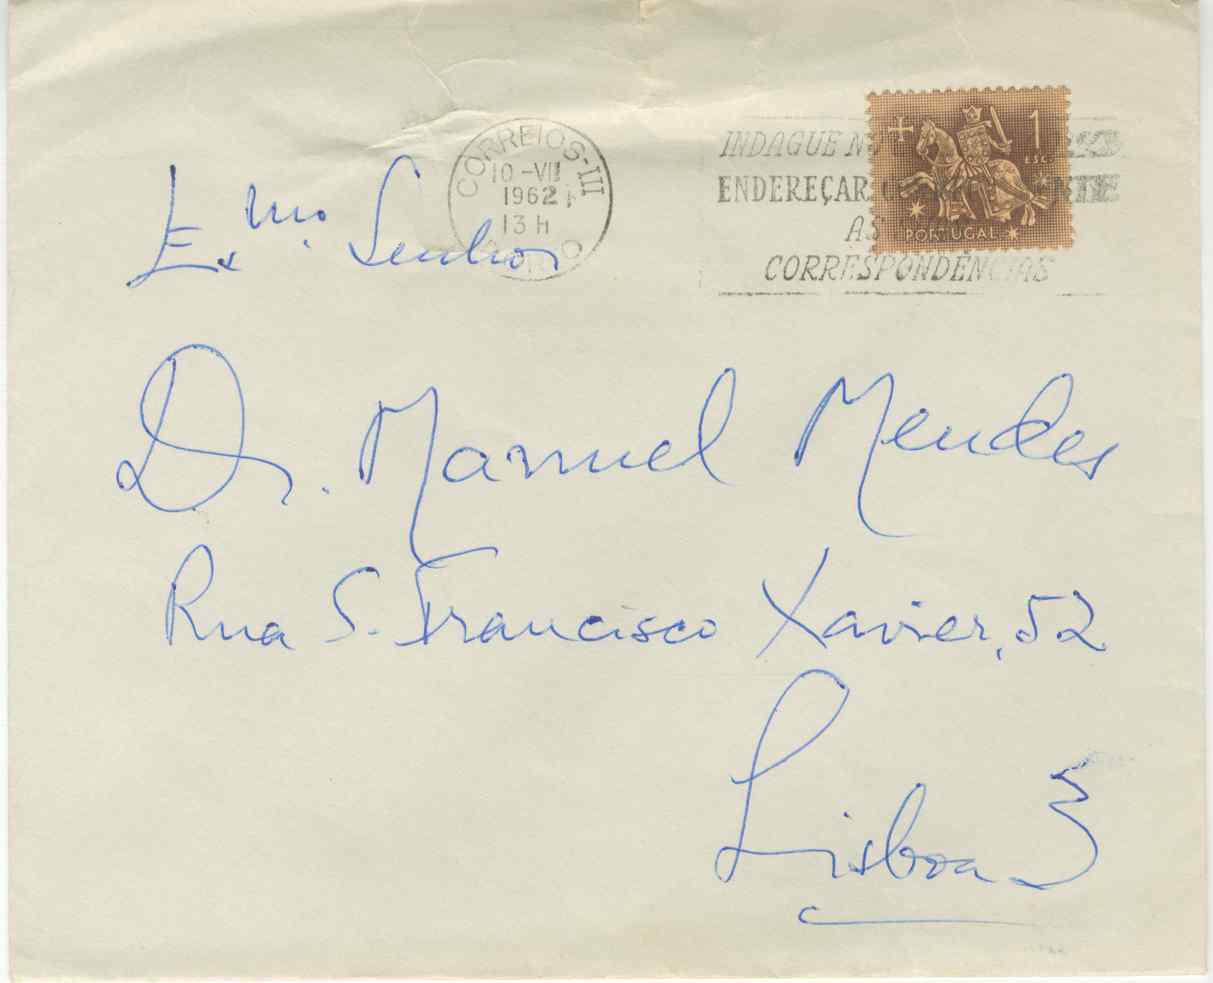 CORREIOS-III
10-VII
1962
13 H
INDAGUE
ENDEREÇAR
AS
CORRESPONDENCIAS
1
ESC.
PORTUGAL
Ex.mo Senhor
Dr. Manuel Mendes
Rua S. Francisco Xavier, 52
Lisboa 3